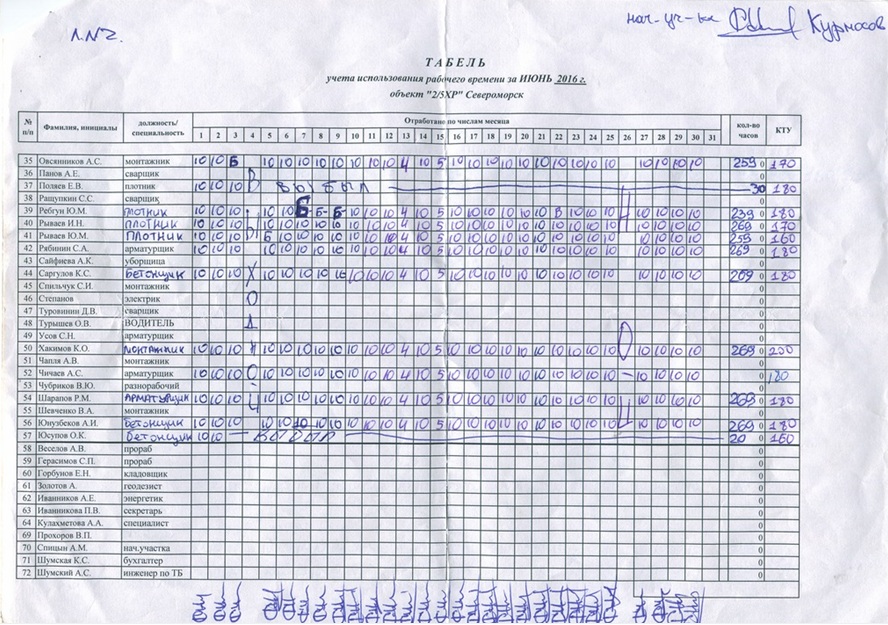 Л.№2.
нач-уч-ка Курносов
ТАБЕЛЬ
учета использования рабочего времени за ИЮНЬ 2016 г.
объект "2/5ХР" Североморск
№ п/п Фамилия, инициалы должность/ специальность Отработано по числам месяца кол-во часов КТУ
1 2 3 4 5 6 7 8 9 10 11 12 13 14 15 16 17 18 19 20 21 22 23 24 25 26 27 28 29 30 31
35 Овсянников А.С. монтажник 10 10 Б 10 10 10 10 10 10 10 10 4 10 5 10 10 10 10 10 10 10 10 10 10 10 10 10 10 259 0 170
36 Панов А.Е. сварщик 0
37 Поляев Е.В. плотник 10 10 10 выбыл 30 180
38 Ращупкин С.С. сварщик 0
39 Ребгун Ю.М. плотник 10 10 10 10 10 Б Б Б 10 10 10 4 10 5 10 10 10 10 10 10 10 10 10 10 10 10 10 10 239 0 180
40 Рываев И.Н. плотник 10 10 10 10 10 10 10 10 10 10 10 4 10 5 10 10 10 10 10 10 10 10 10 10 10 10 10 10 269 0 170
41 Рываев Ю.М. плотник 10 10 10 Б 10 10 10 10 10 10 10 4 10 5 10 10 10 10 10 10 10 10 10 10 10 10 10 10 259 0 160
42 Рябинин С.А. арматурщик 10 10 10 10 10 10 10 10 10 10 10 4 10 5 10 10 10 10 10 10 10 10 10 10 10 10 10 10 269 0 180
43 Сайфиева А.К. уборщица 0
44 Саргулов К.С. бетонщик 10 10 10 10 10 10 10 10 10 10 10 4 10 5 10 10 10 10 10 10 10 10 10 10 10 10 10 10 269 0 180
45 Спильчук С.И. монтажник 0
46 Степанов электрик 0
47 Туровинин Д.В. сварщик 0
48 Турышев О.В. ВОДИТЕЛЬ 0
49 Усов С.Н. арматурщик 0
50 Хакимов К.О. монтажник 10 10 10 10 10 10 10 10 10 10 10 4 10 5 10 10 10 10 10 10 10 10 10 10 10 10 10 10 269 0 200
51 Чапля А.В. монтажник 0
52 Чичаев А.С. арматурщик 10 10 10 10 10 10 10 10 10 10 10 4 10 5 10 10 10 10 10 10 10 10 10 10 10 10 10 10 0 180
53 Чубриков В.Ю. разнорабочий 0
54 Шарапов Р.М. арматурщик 10 10 10 10 10 10 10 10 10 10 10 4 10 5 10 10 10 10 10 10 10 10 10 10 10 10 10 10 269 0 180
55 Шевченко В.А. монтажник 0
56 Юнузбеков А.И. бетонщик 10 10 10 10 10 10 10 10 10 10 10 4 10 5 10 10 10 10 10 10 10 10 10 10 10 10 10 10 269 0 180
57 Юсупов О.К. бетонщик 10 10 — выбыл 20 0 160
58 Веселов А.В. прораб 0
59 Герасимов С.П. прораб 0
60 Горбунов Е.Н. кладовщик 0
61 Золотов А. геодезист 0
62 Иванников А.Е. энергетик 0
63 Иванникова П.В. секретарь 0
64 Кулахметова А.А. специалист 0
69 Прохоров В.П. 0
70 Спицын А.М. нач.участка 0
71 Шумская К.С. бухгалтер 0
72 Шумский А.С. инженер по ТБ 0